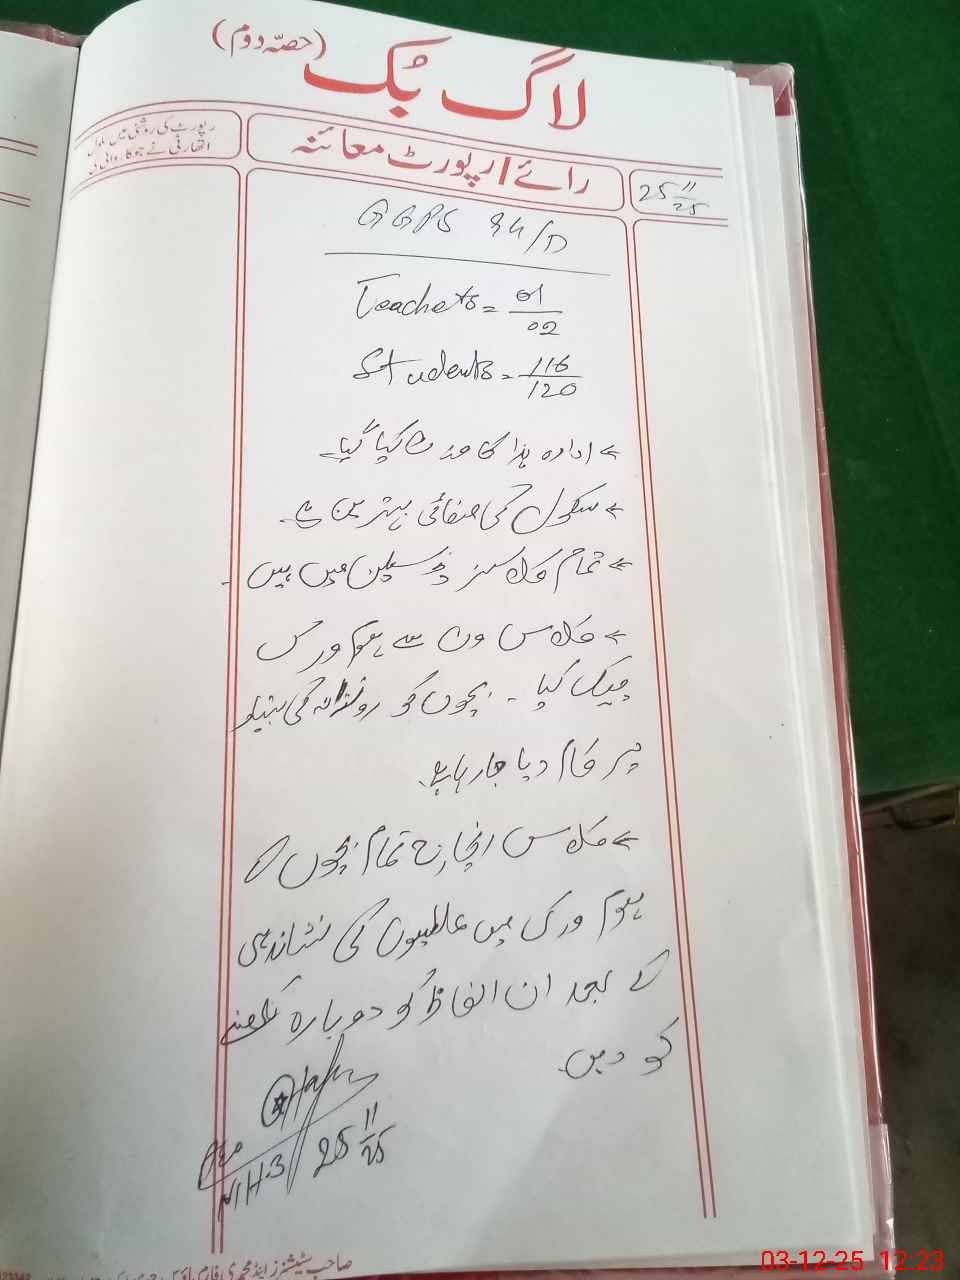 لاگ بک (حصّہ دوم)
رپورٹ کی روشنی میں
اتھارٹی نے جو کاروائی کی
رائے / رپورٹ معائنہ
25 11/25
GGPS 94/D
Teachers = 01/02
Students = 116/120
ادارہ ہذا کا وزٹ کیا گیا۔
سکول کی صفائی بہترین ہے۔
تمام کلاسز ڈسپلن میں ہیں۔
کلاس ون سے ہوم ورک
چیک کیا۔ بچوں کو روزانہ کی بنیاد
پر کام دیا جا رہا ہے۔
کلاس انچارج تمام بچوں کے
ہوم ورک میں غلطیوں کی نشاندہی
کے بعد ان الفاظ کو دوبارہ لکھنے
کو دیں۔
25 11/25
صاحب سٹیشنرز اینڈ محمدی فارم ہاؤس
03-12-25 12:23